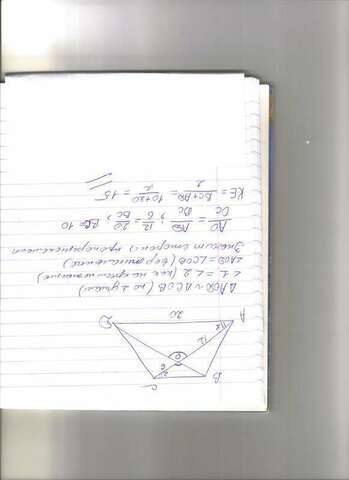 B
C
2
6
O
12
1
A
20
D
ΔAOD ~ ΔCOB (по 2 углам)
∠1 = ∠2 (как накрест лежащие)
∠AOD = ∠COB (вертикальные)
Значит стороны пропорциональны
AO/OC = AD/BC; 12/6 = 20/BC; BC = 10
KE = BC+AD/2 = 10+20/2 = 15